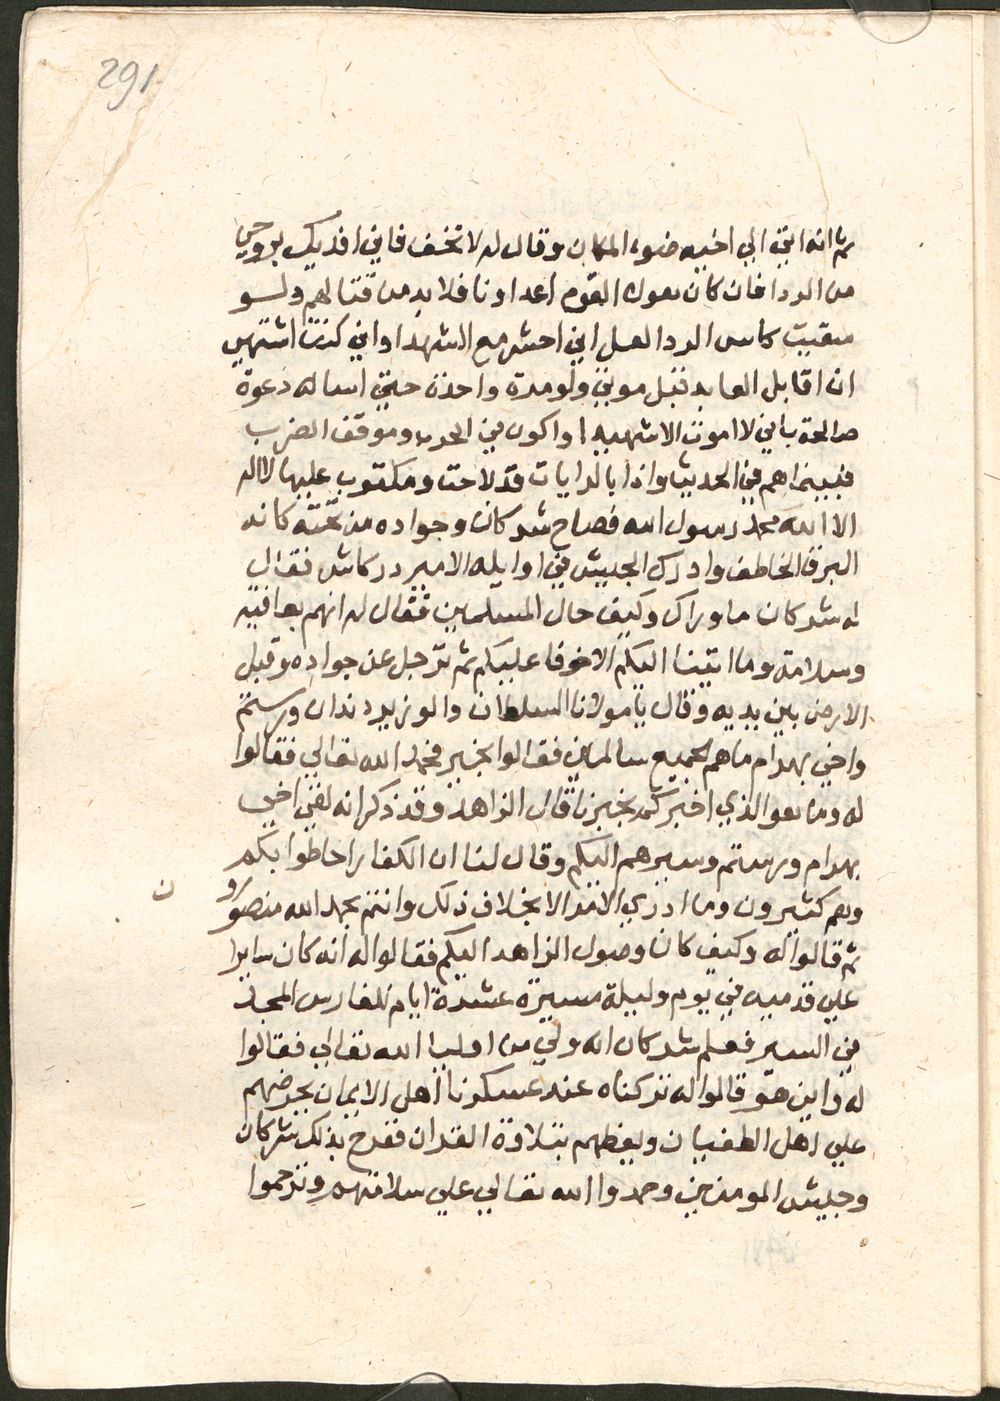 291
ثم انه اتي الي اخيه ضوء المكان وقال له لا تخف فاني افديك بروحي
من الردا فان كان هولا القوم اعداونا فلا بد من قتالهم ولسو
سقيت كاس الردا لعلي اني احشر مع الشهدا واني كنت اشتهي
ان اقابل العابد قبل موتي ولو مدة واحدة حتي اساله دعوة
صالحة باني لا اموت الا شهيدا واكون في الحرب وموقف الضرب
فبينما هم في الحديث واذا بالرايات قد لاحت ومكتوب عليها لا اله
الا الله محمد رسول الله فصاح شركان وجواده من تحته كانه
البرق الخاطف وادرك الجيش في اوايله الامير دركاش فقال
له شركان ما وراك وكيف حال المسلمين فقال له انهم بعافيه
وسلامة وما اتينا اليكم الا خوفا عليكم ثم ترجل عن جواده وقبل
الارض بين يديه وقال يا مولانا السلطان والوزير دندان ورستم
واخي بهرام ما هم الجميع سالمين فقالوا بخير فحمد الله تعالي فقالوا
له وما هو الذي اخبركم بخبرنا قال الزاهد وقد ذكر انه لقي اخي
بهرام ورستم وسيرهم اليكم وقال لنا ان الكفار احاطوا بكم
وهم كثيرون وما ادري الامر الا بخلاف ذلك وانتم بحمد الله منصورو
ن
ثم قالوا له وكيف كان وصول الزاهد اليكم فقالوا له انه كان سايرا
علي قدميه في يوم وليلة مسيرة عشرة ايام للفارس المجد
في السير فعلم شركان انه ولي من اوليا الله تعالي فقالوا
له واين هو قالوا له تركناه عند عسكرنا اهل الايمان يحرضهم
علي اهل الطغيان ويعظهم بتلاوة القران ففرح بذلك شركان
وجيش المومنين وحمدوا الله تعالي علي سلامتهم وترحموا